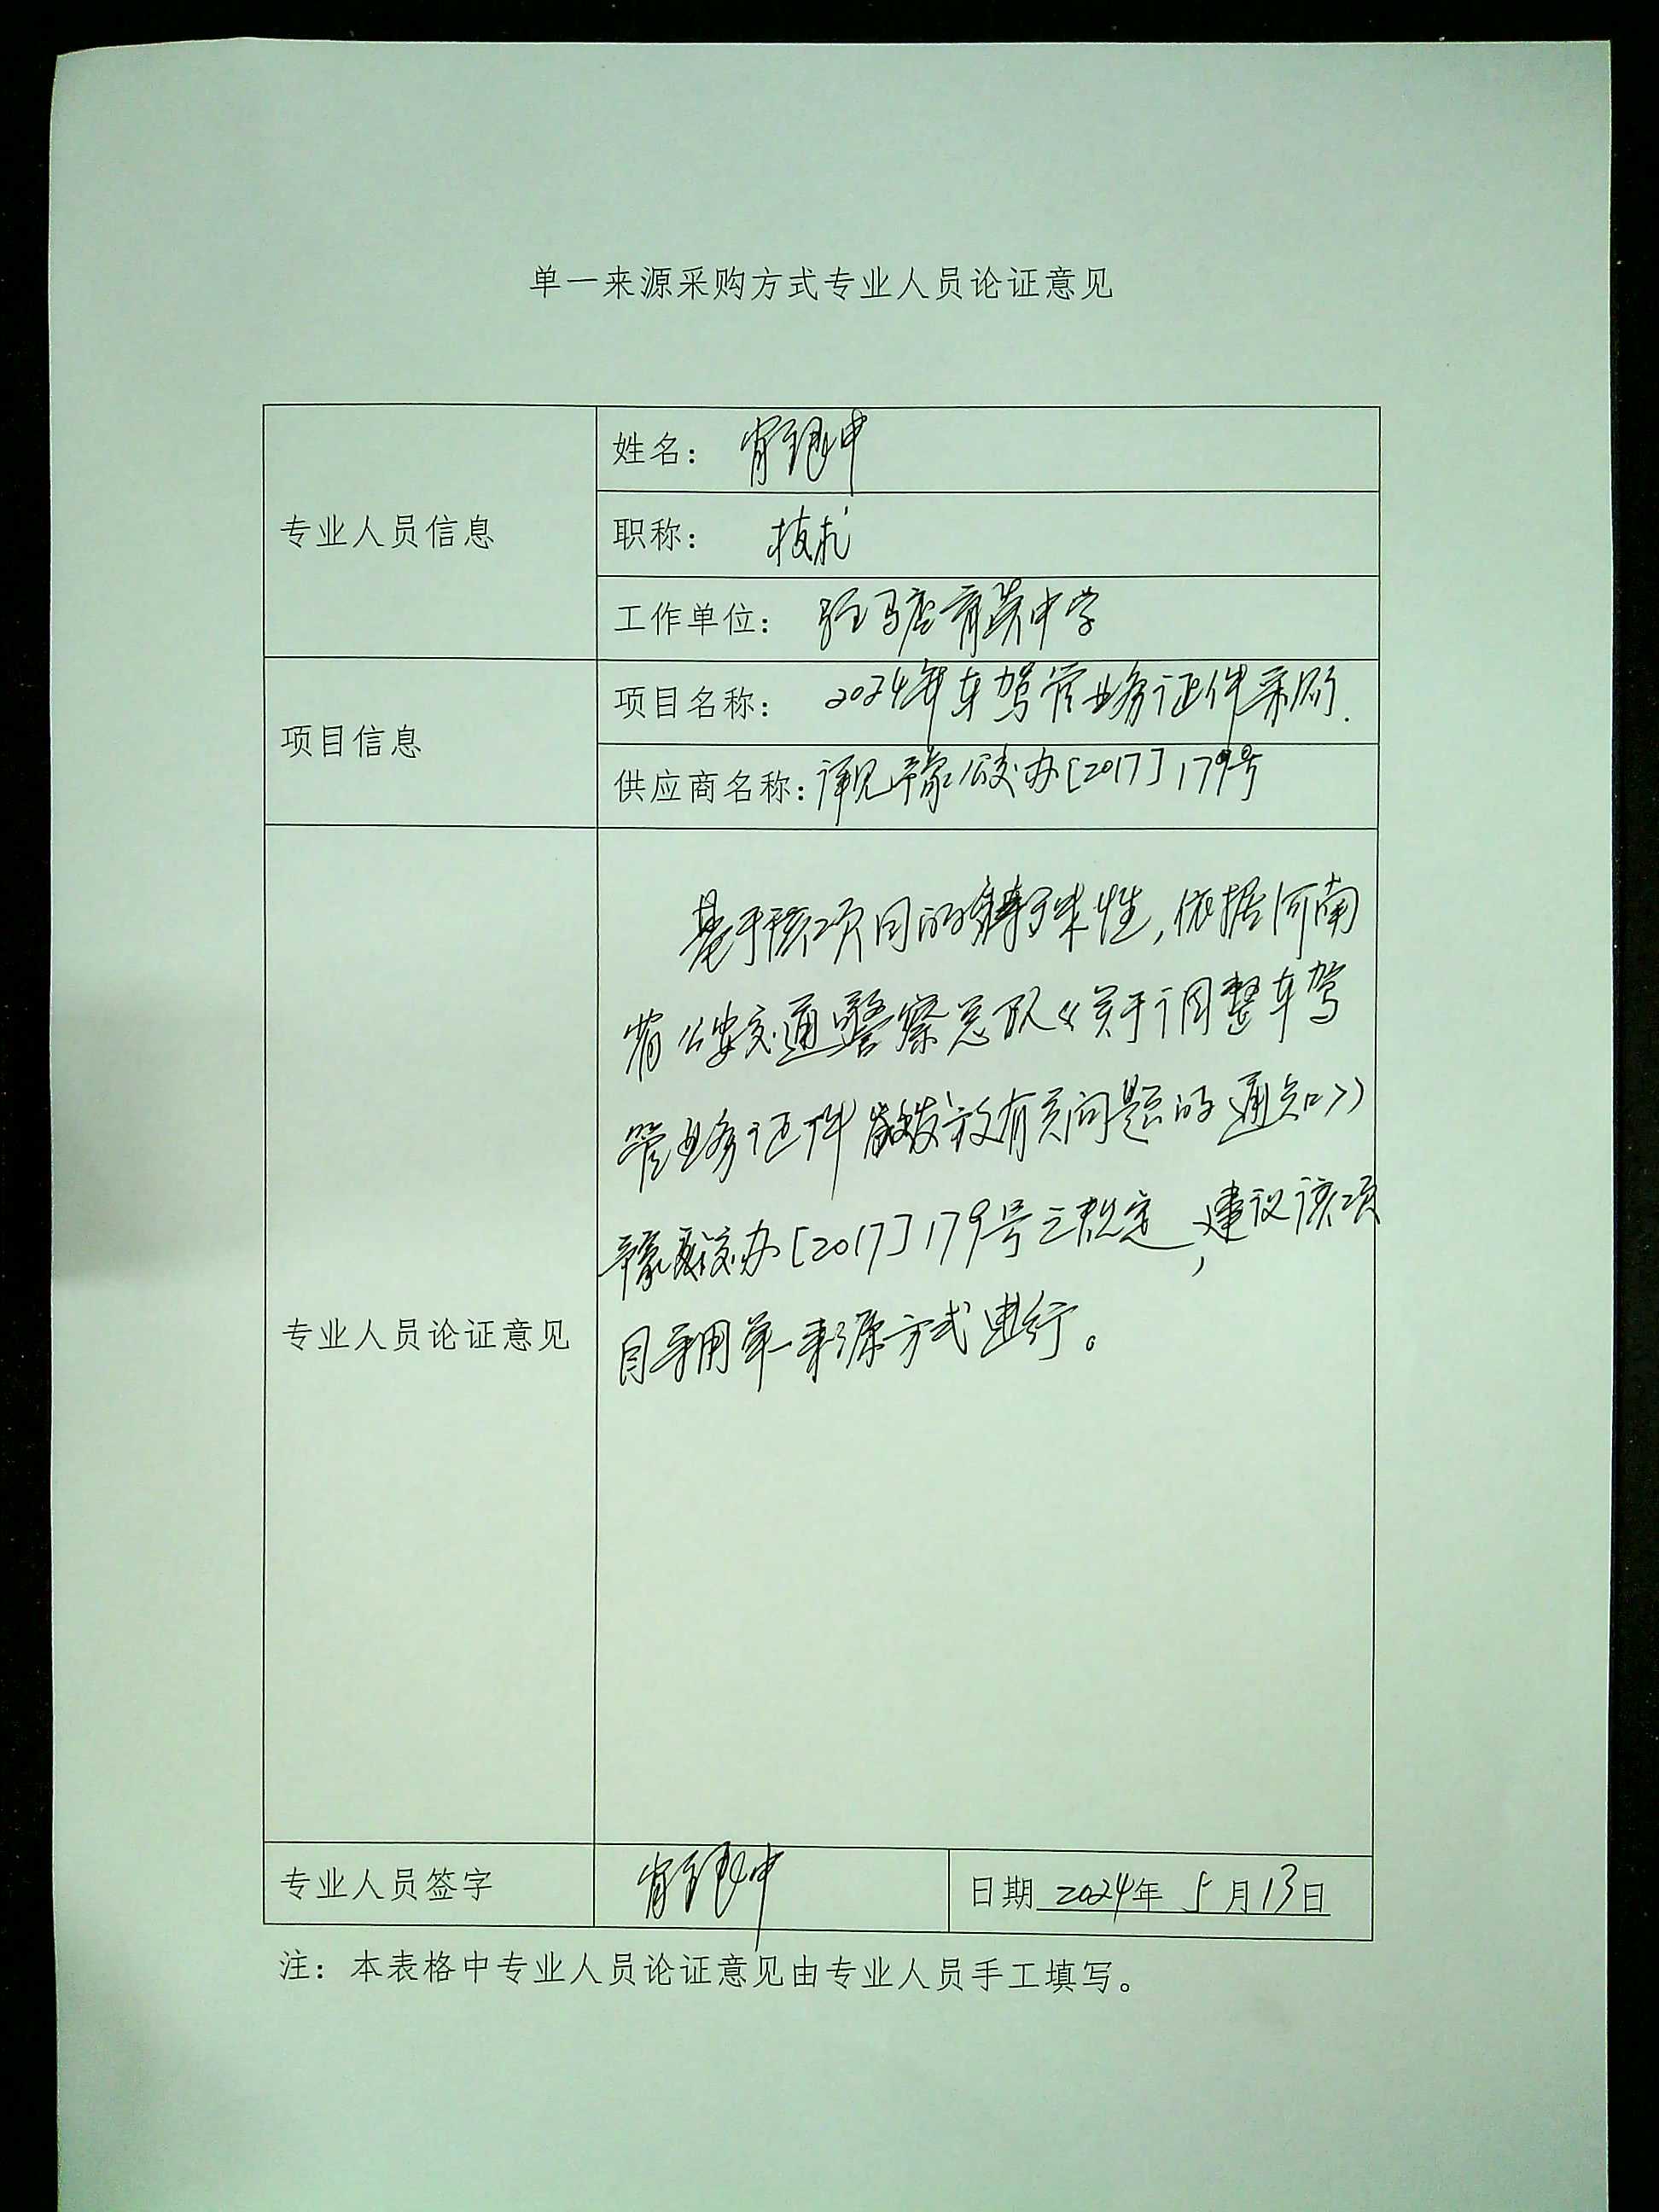 单一来源采购方式专业人员论证意见
专业人员信息
姓名：肖
职称：技术
工作单位：驻马店育英中学
项目信息
项目名称：2024年车驾管业务证件采购.
供应商名称：详见豫公交办[2017]179号
专业人员论证意见
基于该项目的特殊性,依据河南
省公安交通警察总队《关于调整车驾
管业务证件发放有关问题的通知》
豫公交办[2017]179号之规定,建议该项
目采用单一来源方式进行。
专业人员签字
肖
日期 2024年 5月13日
注：本表格中专业人员论证意见由专业人员手工填写。